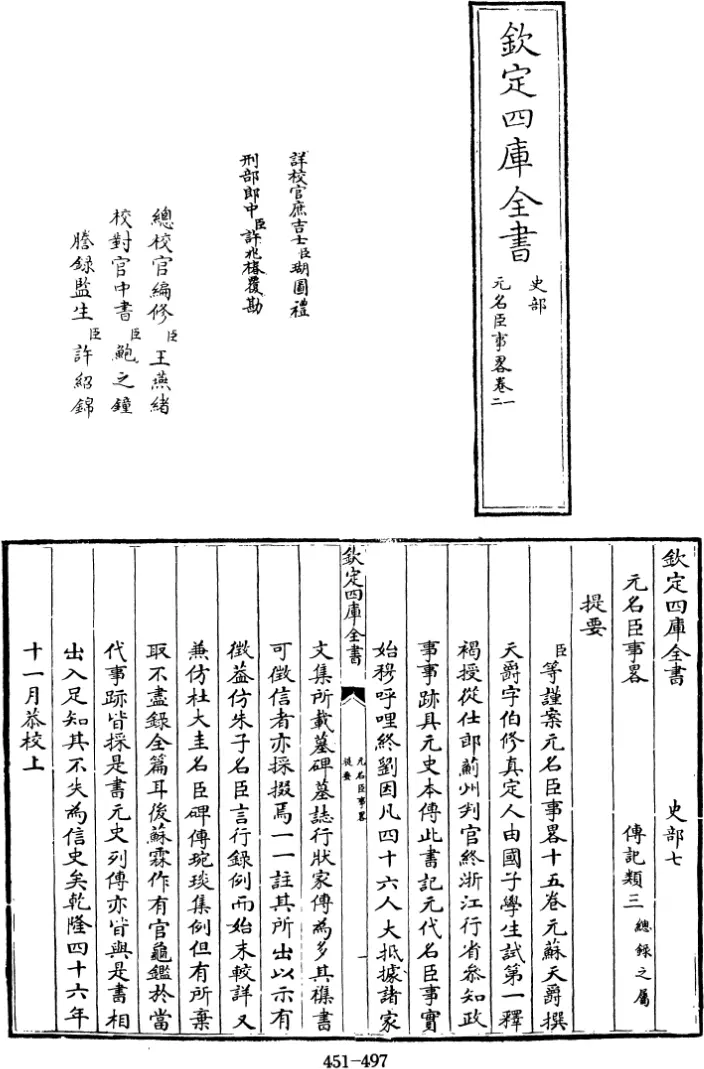 欽定四庫全書
史部
元名臣事畧卷一二
詳校官庶吉士臣瑚圖禮
刑部郎中臣許兆椿覆勘
總校官編修臣王燕緒
校對官中書臣鮑之鐘
謄録監生臣許紹錦
欽定四庫全書 史部七
元名臣事畧 傳記類三總録之屬
提要
臣等謹案元名臣事畧十五卷元蘇天爵撰
天爵字伯修真定人由國子學生試第一釋
褐授從仕郎薊州判官終浙江行省叅知政
事事跡具元史本傳此書記元代名臣事實
始穆呼哩終劉因凡四十六人大抵據諸家
欽定四庫全書
元名臣事畧
提要
文集所載墓碑墓誌行狀家傳為多其襍書
可徵信者亦採掇焉一一註其所出以示有
徵葢仿朱子名臣言行録例而始末較詳又
兼仿杜大圭名臣碑傳琬琰集例但有所棄
取不盡録全篇耳後蘇霖作有官龜鑑於當
代事跡皆採是書元史列傳亦皆與是書相
出入足知其不失為信史矣乾隆四十六年
十一月恭校上
451-497